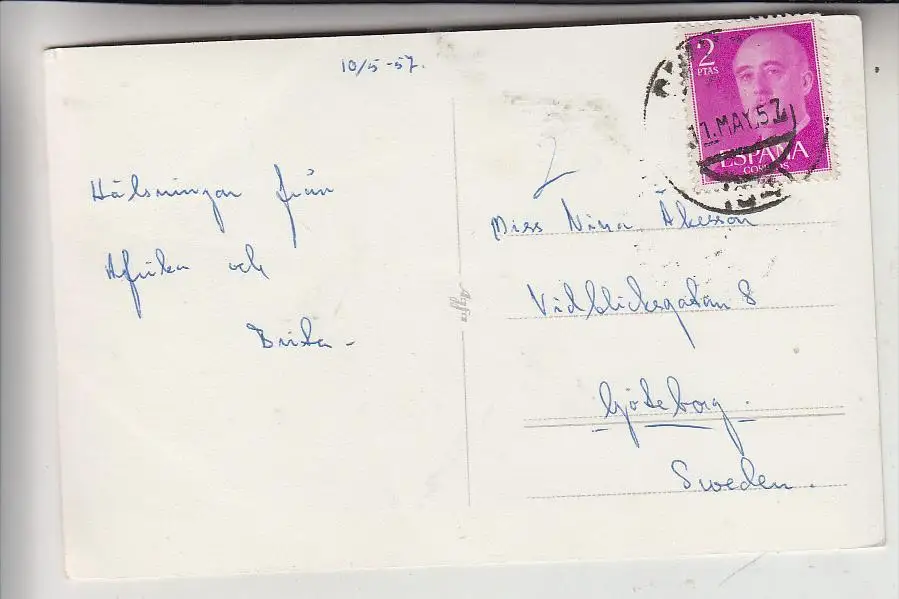 10/5-57.
Hälsningar från
Afrika och
Brita -
2
PTAS
11.MAY.57
ESPAÑA
CORREOS
Miss Nina Åkesson
Vidblicksgatan 8
Göteborg.
Sweden.
Agfa